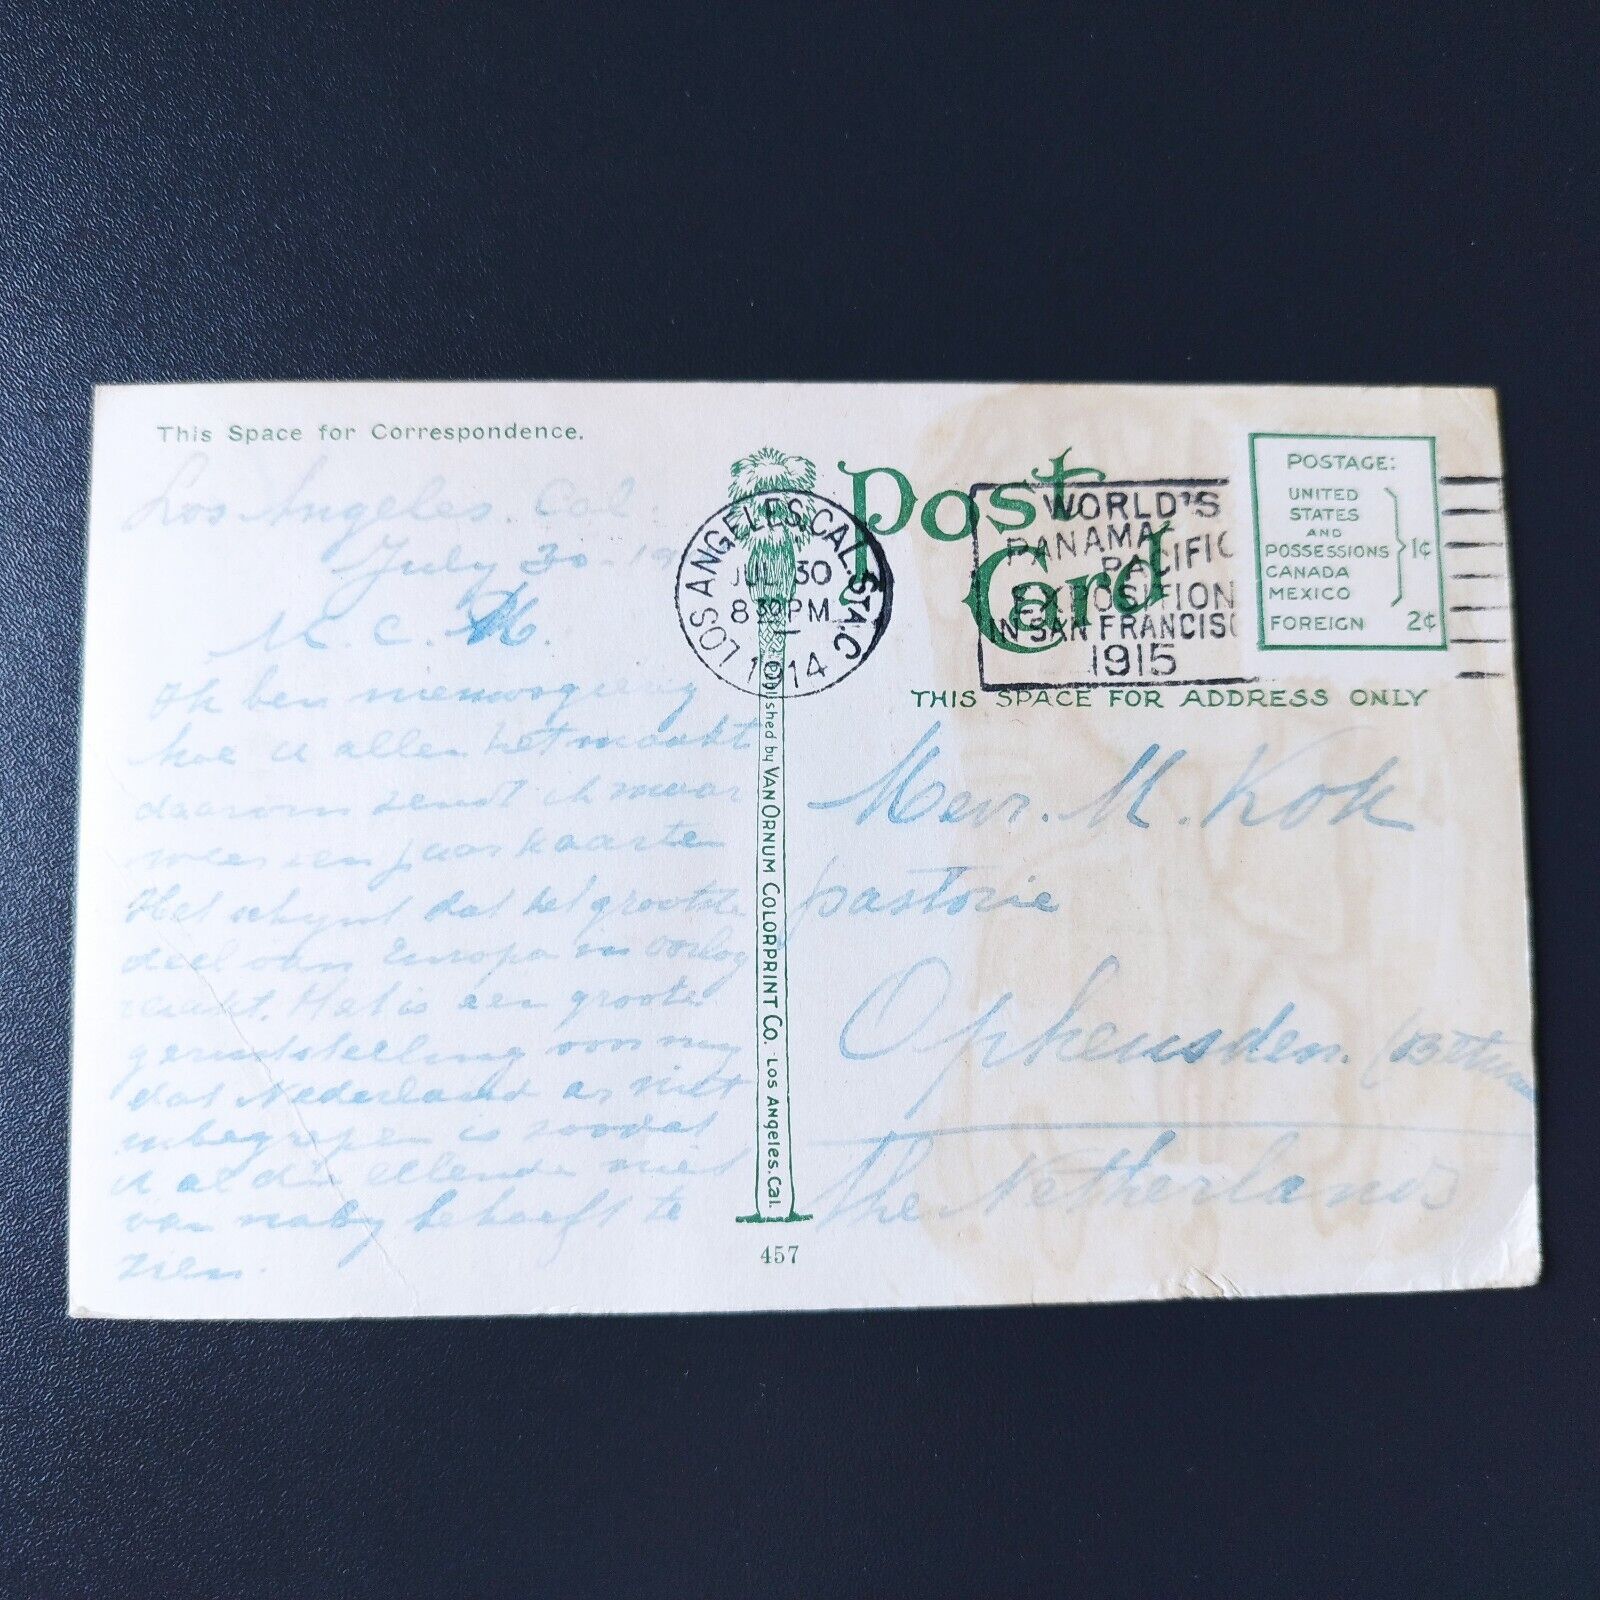 This Space for Correspondence.
Los Angeles. Cal.
July 30-19
M. C. M.
Ik ben nieuwsgierig
hoe u allen het maakt
daarom zendt ik maar
weer een paar kaarten
Het schynt dat het grootste
deel van Europa in oorlog
raakt. Het is een groote
geruststelling voor my
dat Nederland er niet
inbegrepen is zoodat
u al die ellende niet
van naby behoeft te
zien.
LOS ANGELES, CAL. STA. C
JUL 30
8 30 PM
1914
Post Card
WORLD'S
PANAMA
PACIFIC
EXPOSITION
IN SAN FRANCISC
1915
POSTAGE:
UNITED
STATES
AND
POSSESSIONS
CANADA
MEXICO
1¢
FOREIGN 2¢
THIS SPACE FOR ADDRESS ONLY
Mevr. M. Kok
pastorie
Opheusden. (Betuwe
The Netherlands
Published by VAN ORNUM COLORPRINT CO. LOS ANGELES. CAL.
457